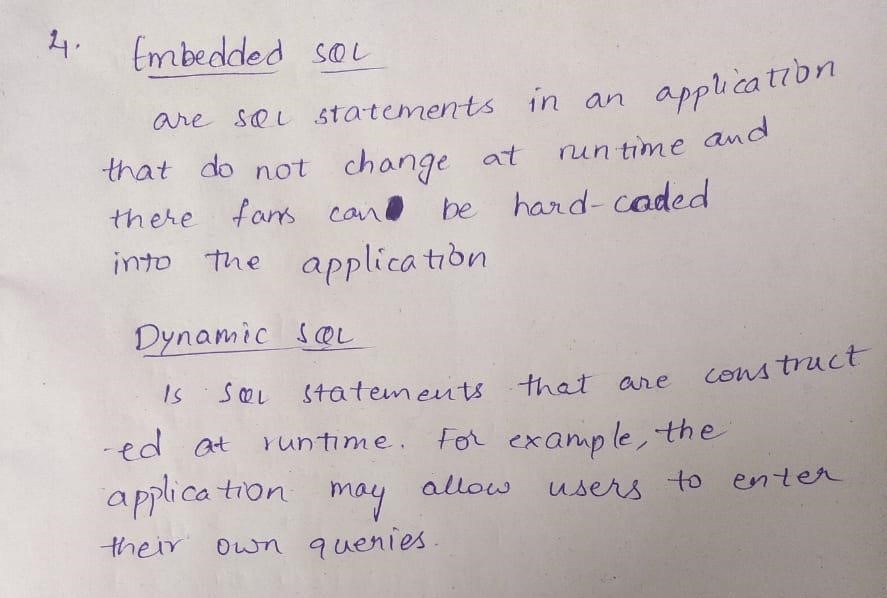 4. Embedded SQL
are SQL statements in an application
that do not change at runtime and
there fars can be hard-coded
into the application
Dynamic SQL
Is SQL statements that are construct
-ed at runtime. For example, the
application may allow users to enter
their own queries.